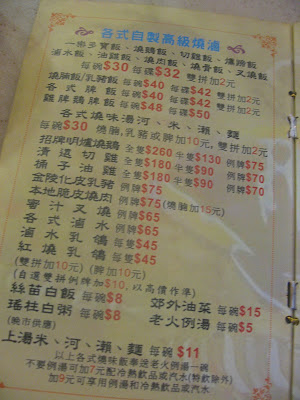 各式自製高級燒滷
一指多寶飯、燒鵝飯、切雞飯、燻蹄飯
滷水飯、油雞飯、燒肉飯、燒骨飯、叉燒飯
每碗$30 每碟$32 雙拼加2元
燒腩飯/乳豬飯 每碗$40 每碟$42 雙拼加2元
各式牌飯 每碗$40 每碟$42 雙拼加2元
雞牌鵝牌飯 每碗$48 每碟$50
各式燒味湯河、米、瀨、麵
每碗$30 燒腩,乳豬或脾加10元,雙拼加2元
招牌明爐燒鵝 全隻$260 半隻$130 例牌$75
清遠切雞 全隻$180 半隻$90 例牌$70
桶子油雞 全隻$180 半隻$90 例牌$70
金陵化皮乳豬 例牌$75
本地脆皮燒肉 例牌$75(燒腩加15元)
蜜汁叉燒 例牌$65
各式滷水 例牌$65
滷水乳鴿 每隻$45
紅燒乳鴿 每隻$45
(雙拼加10元) (脾加10元)
(自選雙拼例牌加$10, 以高價作準)
絲苗白飯 每碗$8 郊外油菜 每碗$15
瑤柱白粥 每碗$8 老火例湯 每碗$5
(晚市供應)
上湯米、河、瀨、麵 每碗 $11
以上各式燒味飯奉送老火例湯一碗
不要例湯可加7元配冷熱飲品或汽水(特飲除外)
加9元可享用例湯和冷熱飲品或汽水